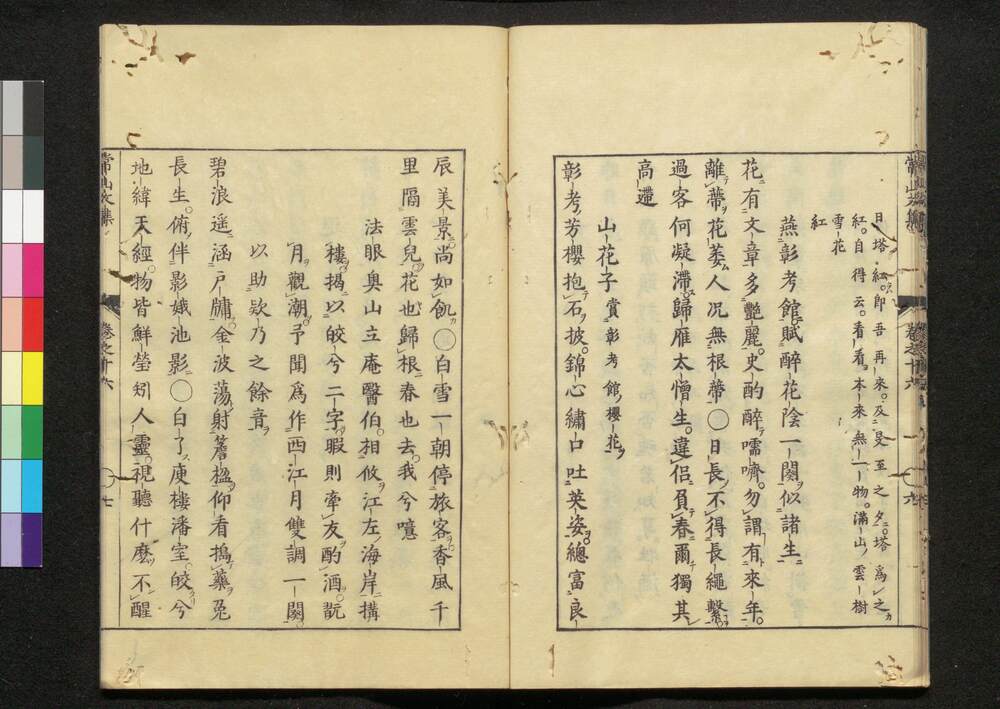 日塔紅。即吾再來。及旻至之夕。塔爲之
紅。自得云。看看。本來無一物。滿山雲樹
雪花
紅
燕彰考館賦醉花陰一闋似諸生
花有文章多艷麗。史酌醉嚅嚌。勿謂有來年。
離蔕花萎人况無根蔕○日長不得長繩繫。
過客何凝滯。歸雁太憎生。違侶負春爾獨其
高遷
山花子賞彰考館櫻花
彰考芳櫻抱石披。錦心繡口吐英姿。總富良
辰美景。尚如飢○白雪一朝停旅客香風千
里隔雲兒。花也歸根春也去。我兮噫
法眼奥山立庵醫伯。相攸江左海岸搆
樓。揭以皎兮二字。暇則牽友酌酒。翫
月觀潮。予聞爲作西江月雙調一闋。
以助欵乃之餘音
碧浪遥涵戸牖。金波蕩射簷楹。仰看搗藥兔
長生。俯伴影娥池影○白了庾樓潘室。皎兮
地緯天經。物皆鮮瑩矧人靈。視聽什麽不醒
常山文集
卷之十六
七
常山文集
卷之十六
六